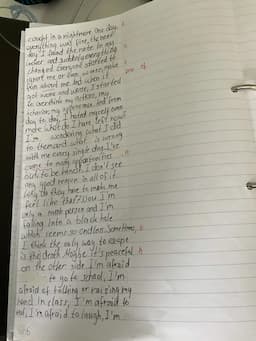 caught in a nightmare. One day,
everything was fine, the next
day I found the note in my
locker and suddenly everything
changed. Everyone started to
ignore me or even worse, make
fun about me. And when it
got worse and worse, I started
to overthink my actions, my
behavior, my appearance. And from
day to day, I hated myself even
more. What do I have left now?
I'm wondering what I did
to them and what is wrong
with me every single day. I've
come to many opportunities
and to be honest, I don't see
any good reason in all of it.
Why do they have to make me
feel like that? Now I'm
only a numb person and I'm
falling into a black hole
which seems so endless. Sometimes,
I think the only way to escape
is the death. Maybe it's peaceful
on the other side. I'm afraid
to go to school, I'm
afraid of talking or raising my
hand in class, I'm afraid to
I'm afraid to laugh, I'm